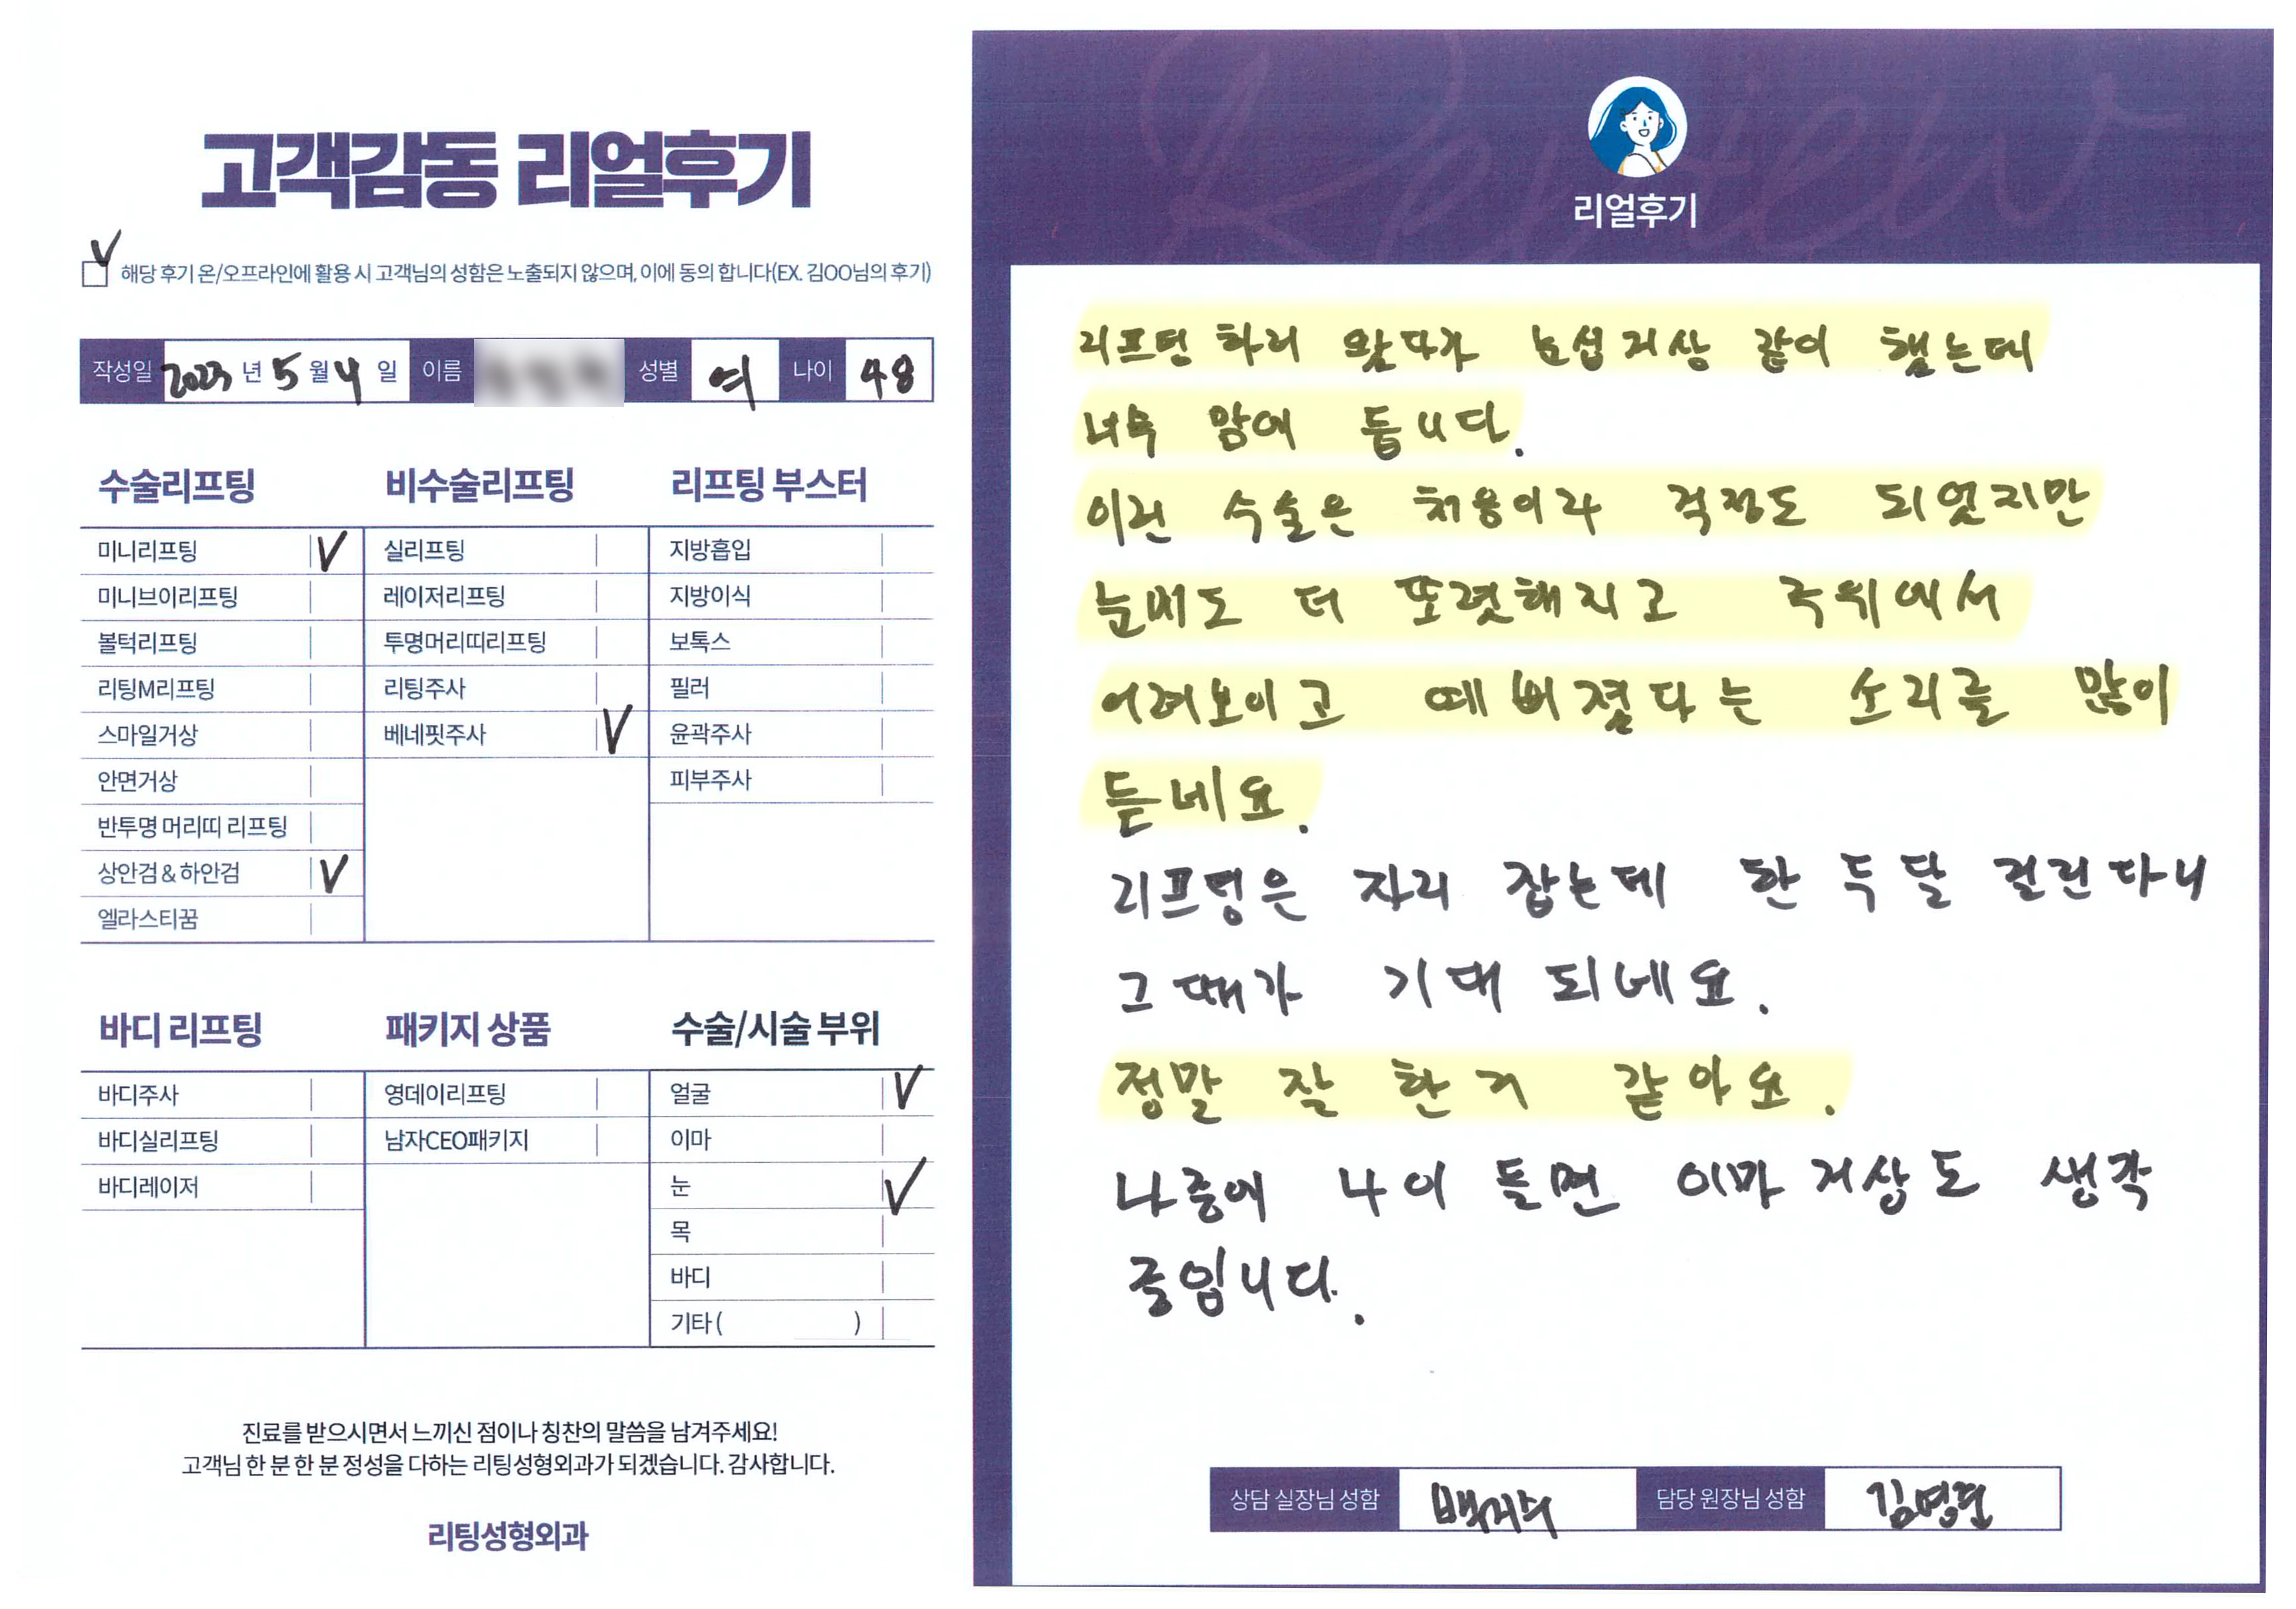 고객감동 리얼후기
해당 후기 온/오프라인에 활용 시 고객님의 성함은 노출되지 않으며, 이에 동의 합니다(EX. 김OO님의 후기)
작성일 2023 년 5 월 4 일 이름 성별 여 나이 48
수술리프팅
미니리프팅 V
미니브이리프팅
볼턱리프팅
리팅M리프팅
스마일거상
안면거상
반투명 머리띠 리프팅
상안검 & 하안검 V
엘라스티꿈
비수술리프팅
실리프팅
레이저리프팅
투명머리띠리프팅
리팅주사
베네핏주사 V
리프팅 부스터
지방흡입
지방이식
보톡스
필러
윤곽주사
피부주사
바디 리프팅
바디주사
바디실리프팅
바디레이저
패키지 상품
영데이리프팅
남자CEO패키지
수술/시술 부위
얼굴 V
이마
눈 V
목
바디
기타 ( )
진료를 받으시면서 느끼신 점이나 칭찬의 말씀을 남겨주세요!
고객님 한 분 한 분 정성을 다하는 리팅성형외과가 되겠습니다. 감사합니다.
리팅성형외과
Review
리얼후기
리프팅 하러 왔다가 눈섭거상 같이 했는데
너무 맘에 듭니다.
이런 수술은 처음이라 걱정도 되었지만
눈매도 더 또렷해지고 주위에서
어려보이고 예뻐졌다는 소리를 많이
듣네요.
리프팅은 자리 잡는데 한 두달 걸린다니
그때가 기대 되네요.
정말 잘 한거 같아요.
나중에 나이 들면 이마거상도 생각
중입니다.
상담 실장님 성함 백지수 담당 원장님 성함